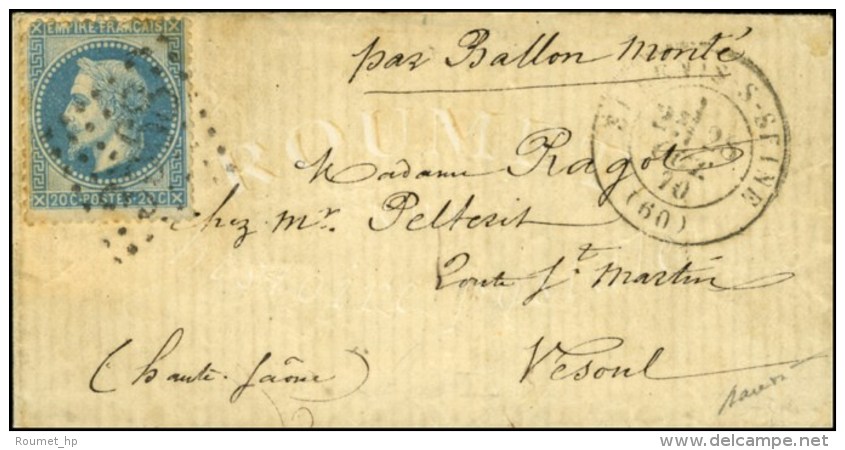 EMPIRE FRANÇAIS
20C·POSTES·20C
par Ballon Monté
S-SEINE
70
(60)
ROUM
Madame Ragot
chez Mr. Pelterit
Route St. Martin
Vésoul
(haute-Saône)
Roumet_hp
www.delcampe.net